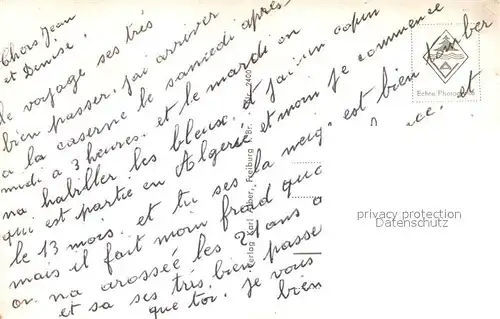 Chers Jean
et Denise.
le voyage ses très
bien passer, j'ai arriver
a la caserne le samedi après
midi a 3 heures. et le mardi on
na habiller les bleus. et j'ai un copin
qui est partie en Algerie et moin je commence
le 13 mois. et tu ses la neige est bien tomber
mais il fait moin froid que
on na arossée les 21 ans a
et sa ses très bien passe
que toi. je vous
bien
et
Echte Photographie
Verlag Karl Alber, Freiburg i. Br.
2400
privacy protection
Datenschutz